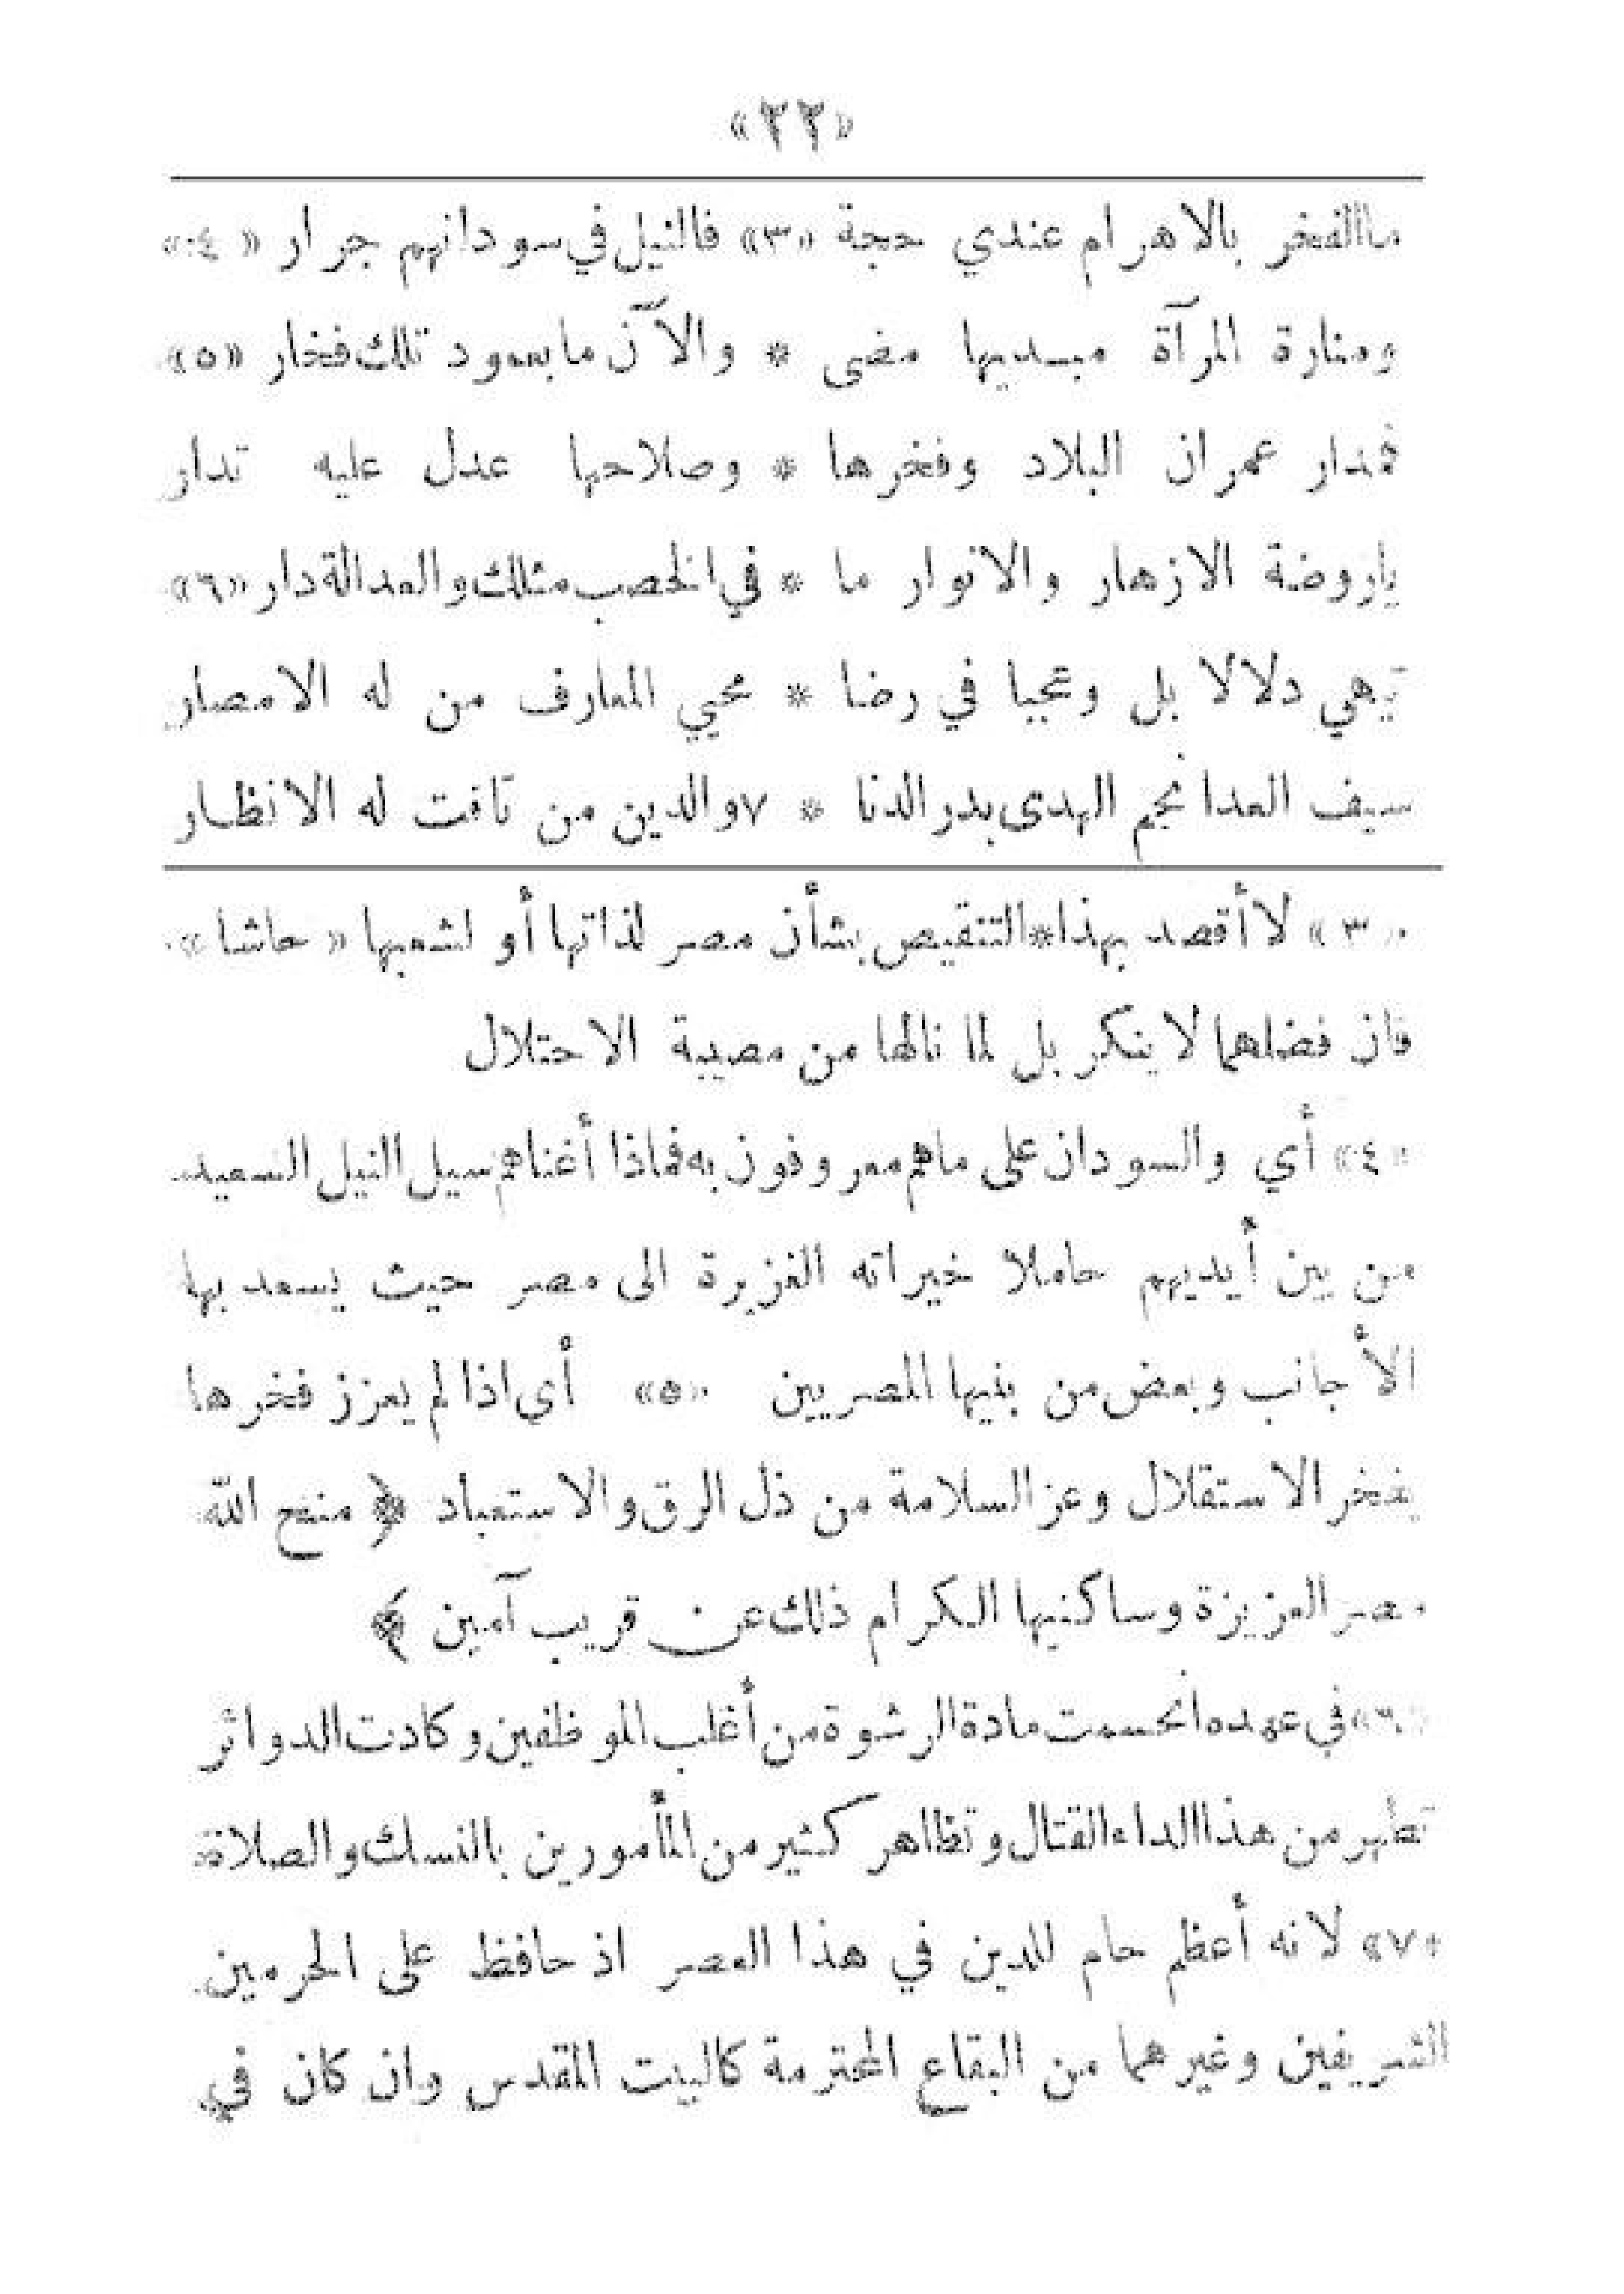 «٣٣»
ما الفخر بالاهرام عندي حجة «٣» فالنيل في سودانهم جرار «٤»
ومنارة المرآة مبديها مضى * والآن ما بعمود تلك فخار «٥»
فمدار عمران البلاد وفخرها * وصلاحها عدل عليه تدار
ياروضة الازهار والانوار ما * في الخصب مثلك والعدالة دار «٦»
تيهي دلالا بل وعجبا في رضا * محيي المعارف من له الامصار
سيف العدا نجم الهدى بدر الدنا * ٧ والدين من تاقت له الانظار
«٣» لا أقصد بهذا*التنقيص بشأن مصر لذاتها أو لشعبها «حاشا»
فان فضلهما لا ينكر بل لما نالها من مصيبة الاحتلال
«٤» أي والسودان على ماهم معروفون به فماذا أغناهم سيل النيل السعيد
من بين أيديهم حاملا خيراته الغزيرة الى مصر حيث يسعد بها
الأجانب وبعض من بنيها المصريين «٥» أي اذا لم يعزز فخرها
بفخر الاستقلال وعز السلامة من ذل الرق والاستعباد ﴿ منح الله
مصر العزيزة وساكنيها الكرام ذلك عن قريب آمين ﴾
«٦» في عهده انحسمت مادة الرشوة من أغلب الموظفين وكادت الدوائر
تطهر من هذا الداء القتال وتظاهر كثير من المأمورين بالنسك والصلاة
«٧» لانه أعظم حام للدين في هذا العصر اذ حافظ على الحرمين
الشريفين وغيرهما من البقاع المحترمة كالبيت المقدس وان كان في